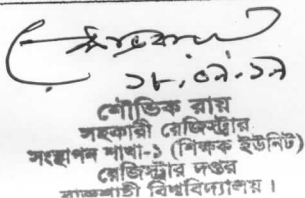 ১৮.০৯.১৭
শৌভিক রায়
সহকারী রেজিস্ট্রার
সংস্থাপন শাখা-১ (শিক্ষক ইউনিট)
রেজিস্ট্রার দপ্তর
রাজশাহী বিশ্ববিদ্যালয়।